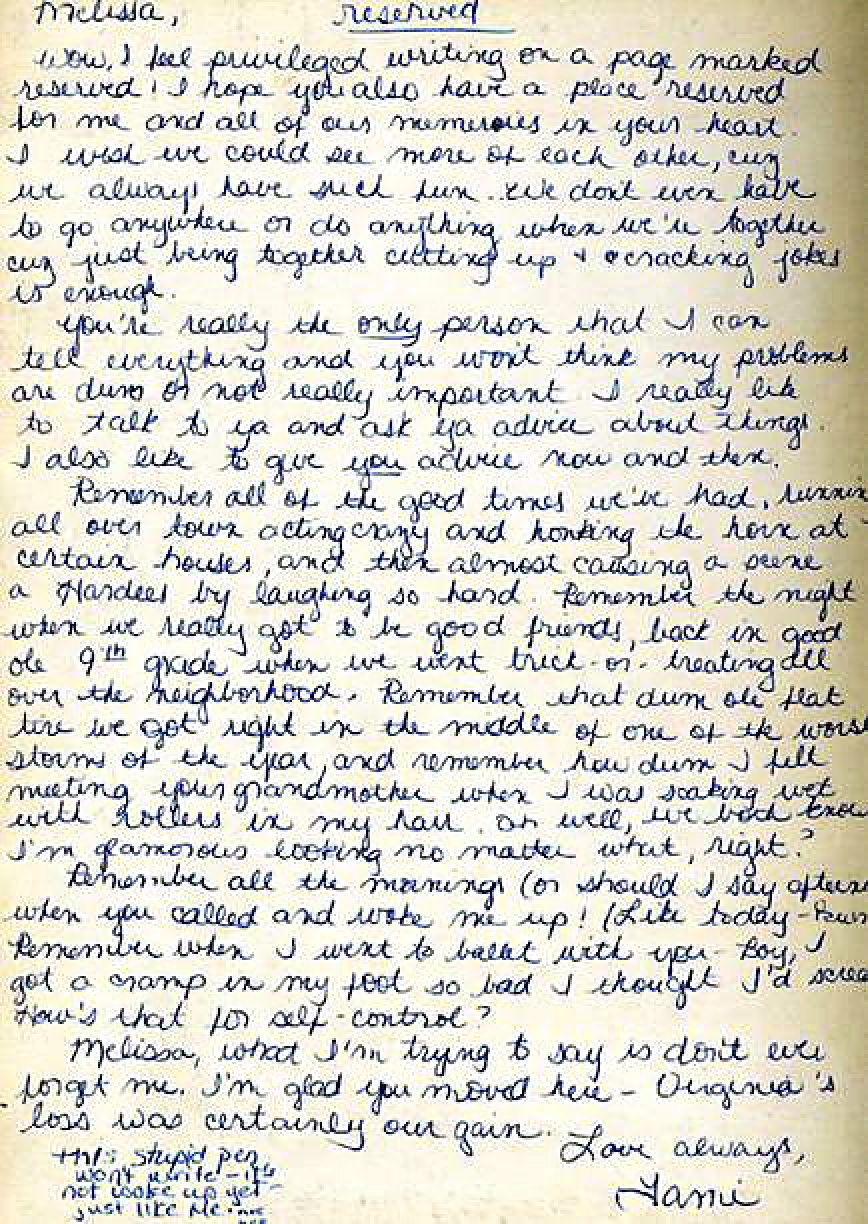 Melissa, reserved
Wow, I feel privileged writing on a page marked
reserved! I hope you also have a place "reserved
for me and all of our memeroies in your heart.
I wish we could see more of each other, cuz
we always have such fun. We don't even have
to go anywhere or do anything when we're together
cuz just being together cutting up + cracking jokes
is enough.
You're really the only person that I can
tell everything and you won't think my problems
are dum or not really important. I really like
to talk to ya and ask ya advice about things.
I also like to give you advice now and then.
Remember all of the good times we've had, runnin
all over town acting crazy and honking the horn at
certain houses, and then almost causing a scene
a Hardees by laughing so hard. Remember the night
when we really got to be good friends, back in good
ole 9th grade when we went trick-or-treating all
over the neighborhood. Remember that dum ole flat
tire we got right in the middle of one of the wors
storms of the year, and remember how dum I felt
meeting your grandmother when I was soaking wet
with rollers in my hair. Oh well, we both know
I'm glamorous looking no matter what, right?
Remember all the mornings (or should I say aftern
when you called and woke me up! (Like today-
Remember when I went to ballet with you- Boy, I
got a cramp in my foot so bad I thought I'd screa
How's that for self-control?
Melissa, what I'm trying to say is don't ever
forget me. I'm glad you moved here - Virginia's
loss was certainly our gain.
Love always,
Tami
this stupid pen
won't write - it's
not woke up yet
just like me